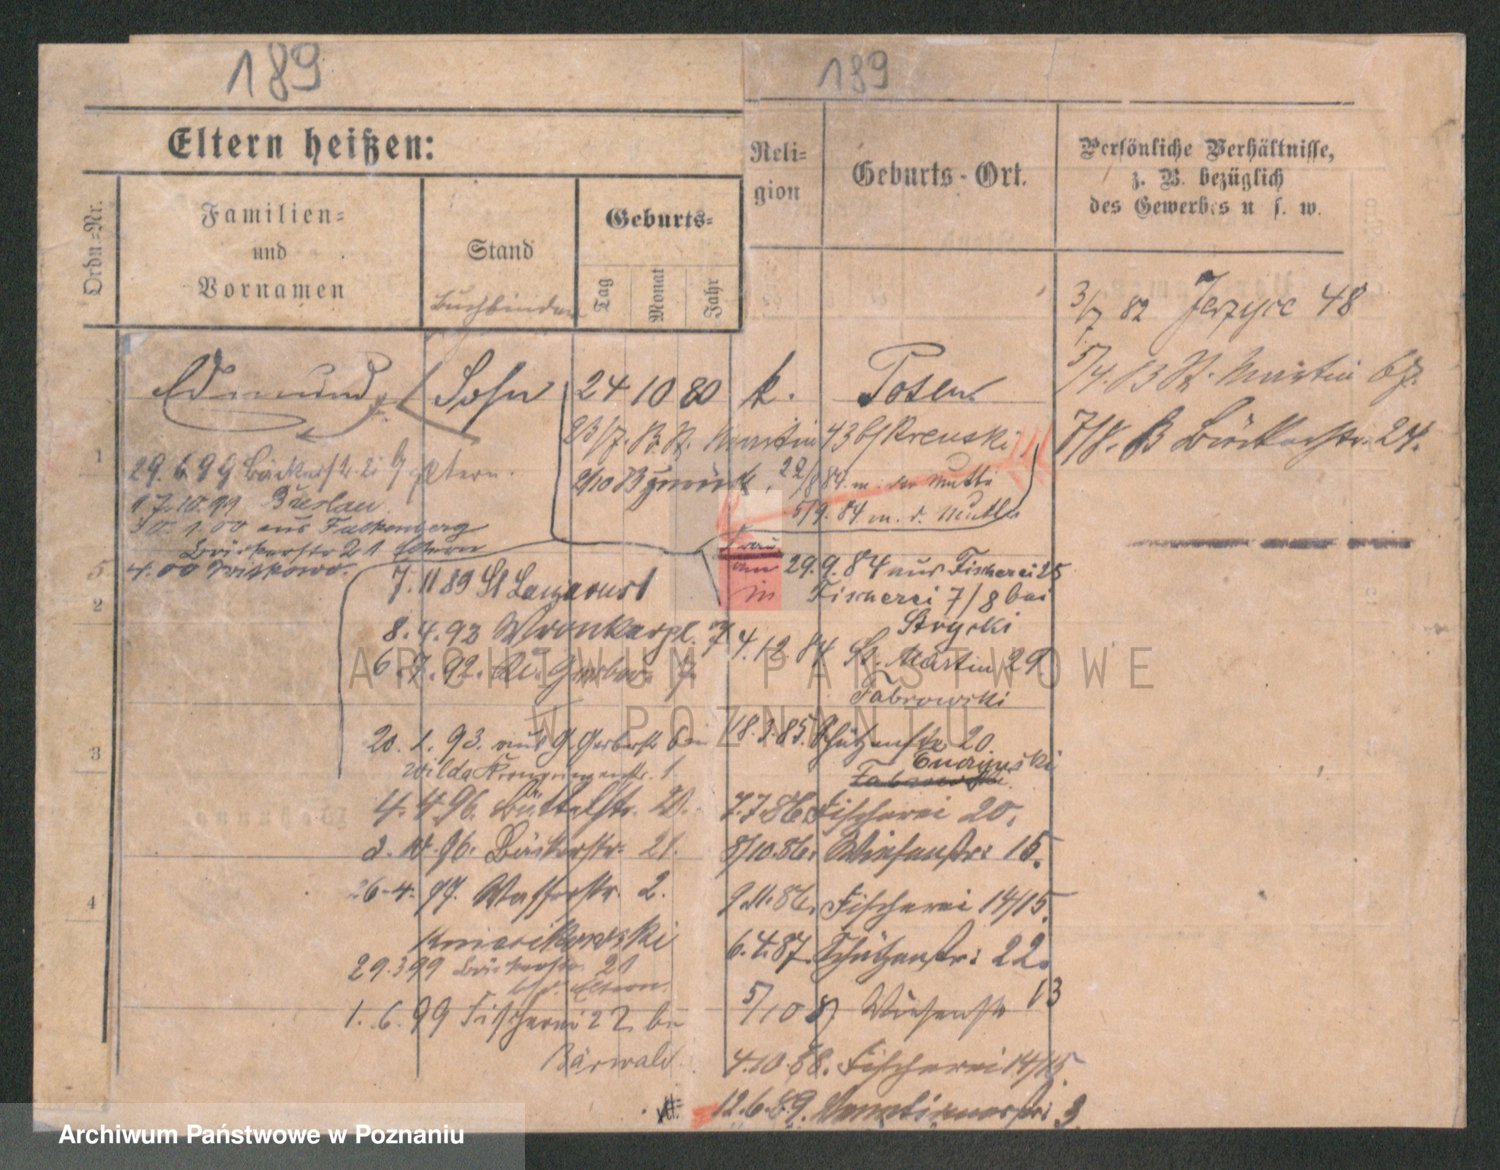 189
189
Eltern heißen:
Ordn.-Nr.
Familien-
und
Vornamen
Stand
Buchbinder
Geburts-
Tag
Monat
Jahr
Reli-
gion
Geburts-Ort.
Persönliche Verhältnisse,
z. B. bezüglich
des Gewerbes u. s. w.
3/7 82 Jerzyce 48
5/4. 83 St. Martin 67.
7/8. 83 Bäckerstr. 24.
Edmund
Sohn
24 10 80
k.
Posen
23/7. 83 St. Martin 43 b/ Krenski
2/10 83 zurück, 29/8 84 m. der Mutter
5/9. 84 m. d. Mutter
1
29. 6. 99 Bäckerstr. 21 Eltern.
17. 10. 99 Breslau.
10. 1. 00 aus Falkenberg
Bäckerstr 21 Eltern
4. 00
Frau
in
29. 9. 84 aus Fischerei 25
Fischerei 7/8 bei
4. 12 84 St. Martin 29
18. 3. 85 Schützenstr 20
7. 7. 86. Fischerei 20.
8/10. 86. Wiesenstr: 15.
9. 11. 86. Fischerei 14/15.
6. 4. 87. Schützenstr: 22.
5/10 87 Wiesenstr 13
4. 10. 88. Fischerei 14/15
12. 6. 89.
7. 11 89 St Lazarus 1
8. 4. 92 Wronkerpl. 7
6. 7. 92. Kl. Gerber. 7
20. 1. 93. aus Gr. Gerberstr
Wilda Kronprinzenstr. 1
4. 4. 96. Büttelstr. 20.
2. 10. 96. Bäckerstr. 21.
26. 4. 97. Wasserstr. 2.
29. 3 99 Bäckerstr. 21
bei d. Eltern.
1. 6. 99 Fischerei 22 bei
Bärwald
5
2
3
4
ARCHIWUM PAŃSTWOWE
W POZNANIU
Archiwum Państwowe w Poznaniu